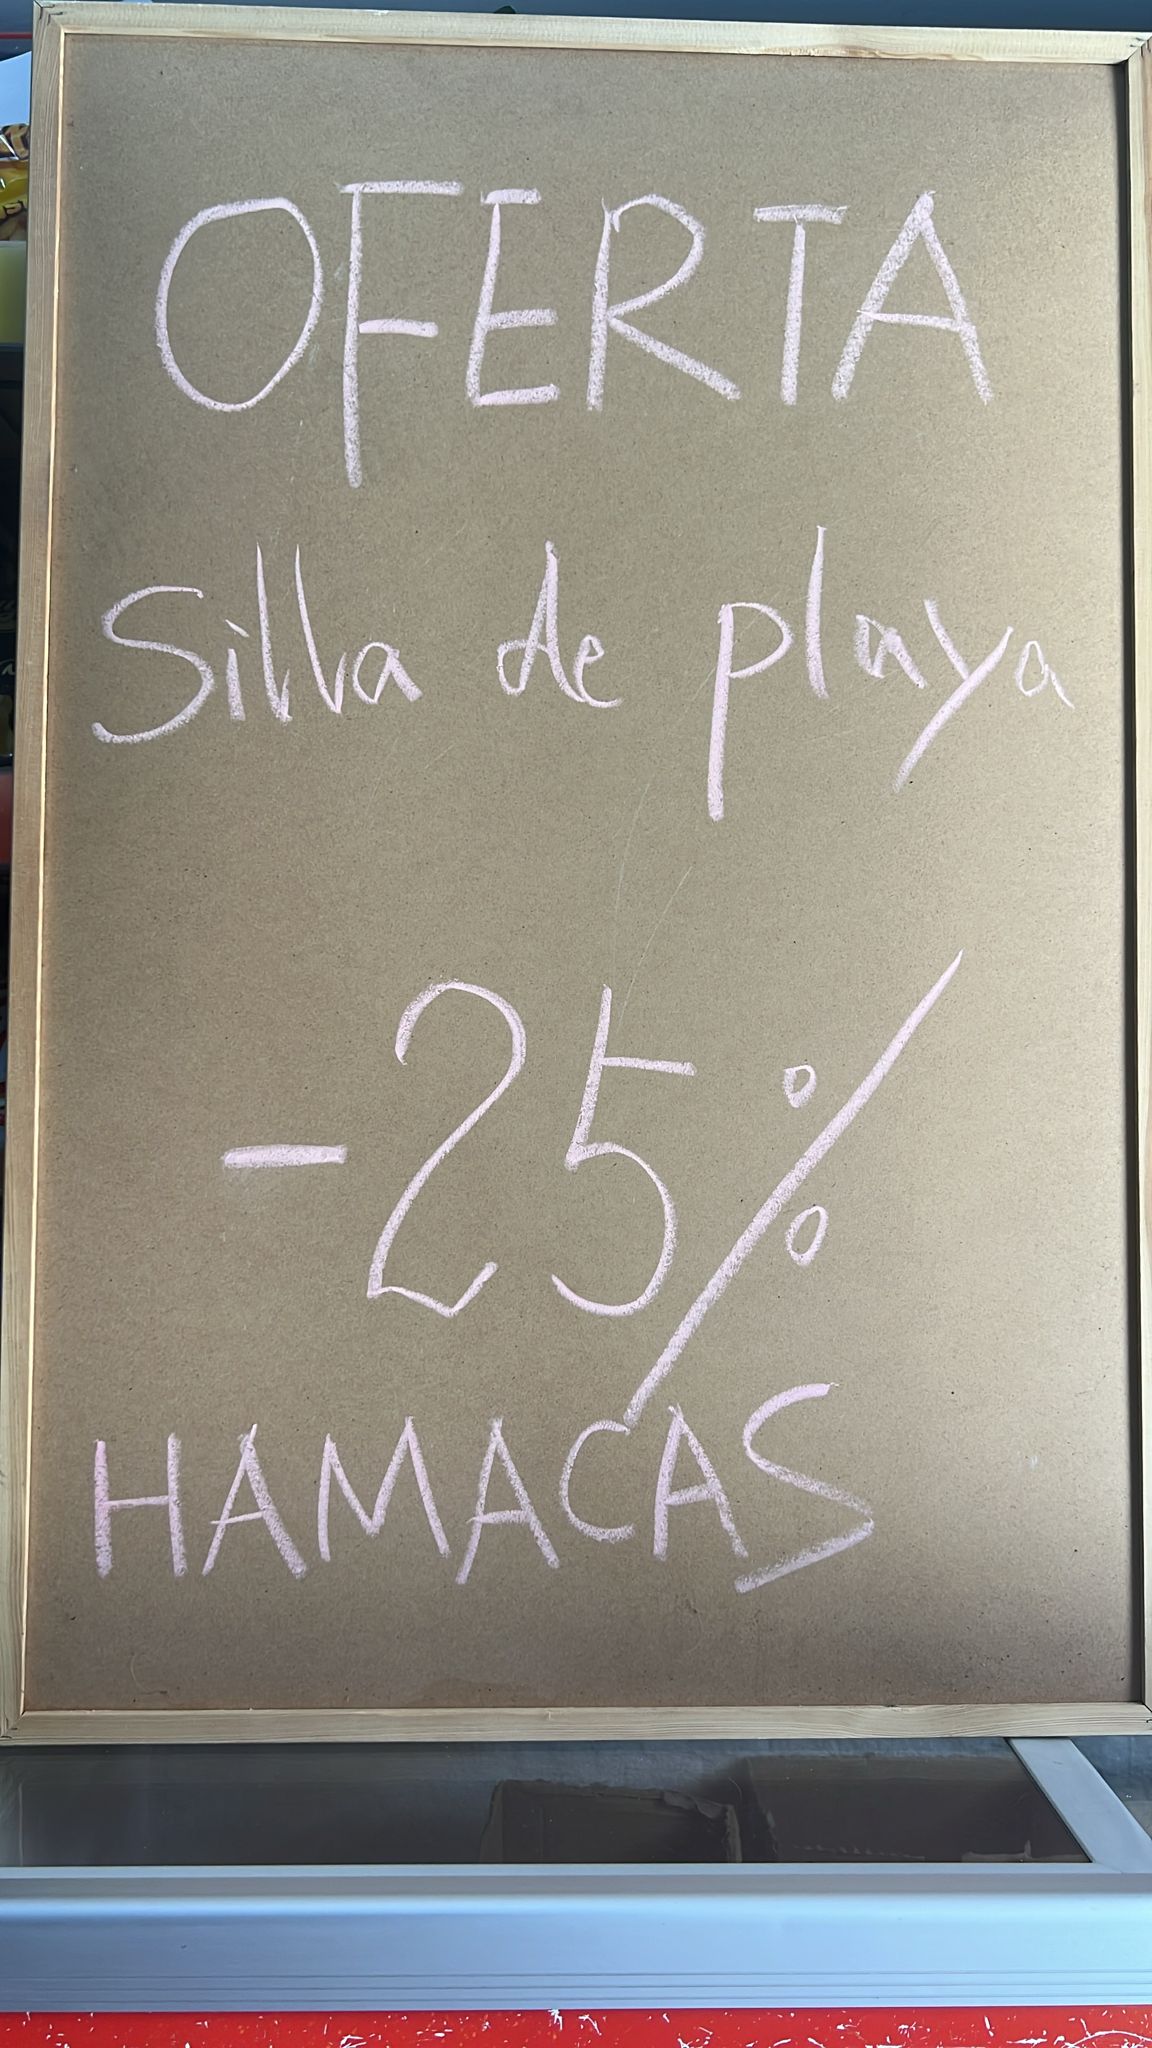 OFERTA
Silla de playa
-25%
HAMACAS